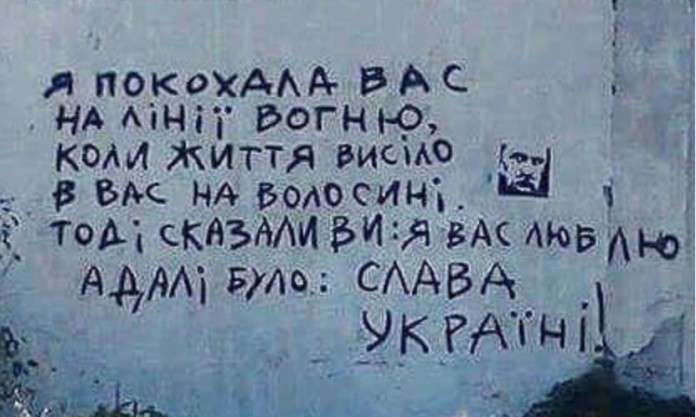 Я ПОКОХАЛА ВАС
НА ЛІНІЇ ВОГНЮ,
КОЛИ ЖИТТЯ ВИСІЛО
В ВАС НА ВОЛОСИНІ.
ТОДІ СКАЗАЛИ ВИ: Я ВАС ЛЮБЛЮ
А ДАЛІ БУЛО: СЛАВА
УКРАЇНІ!